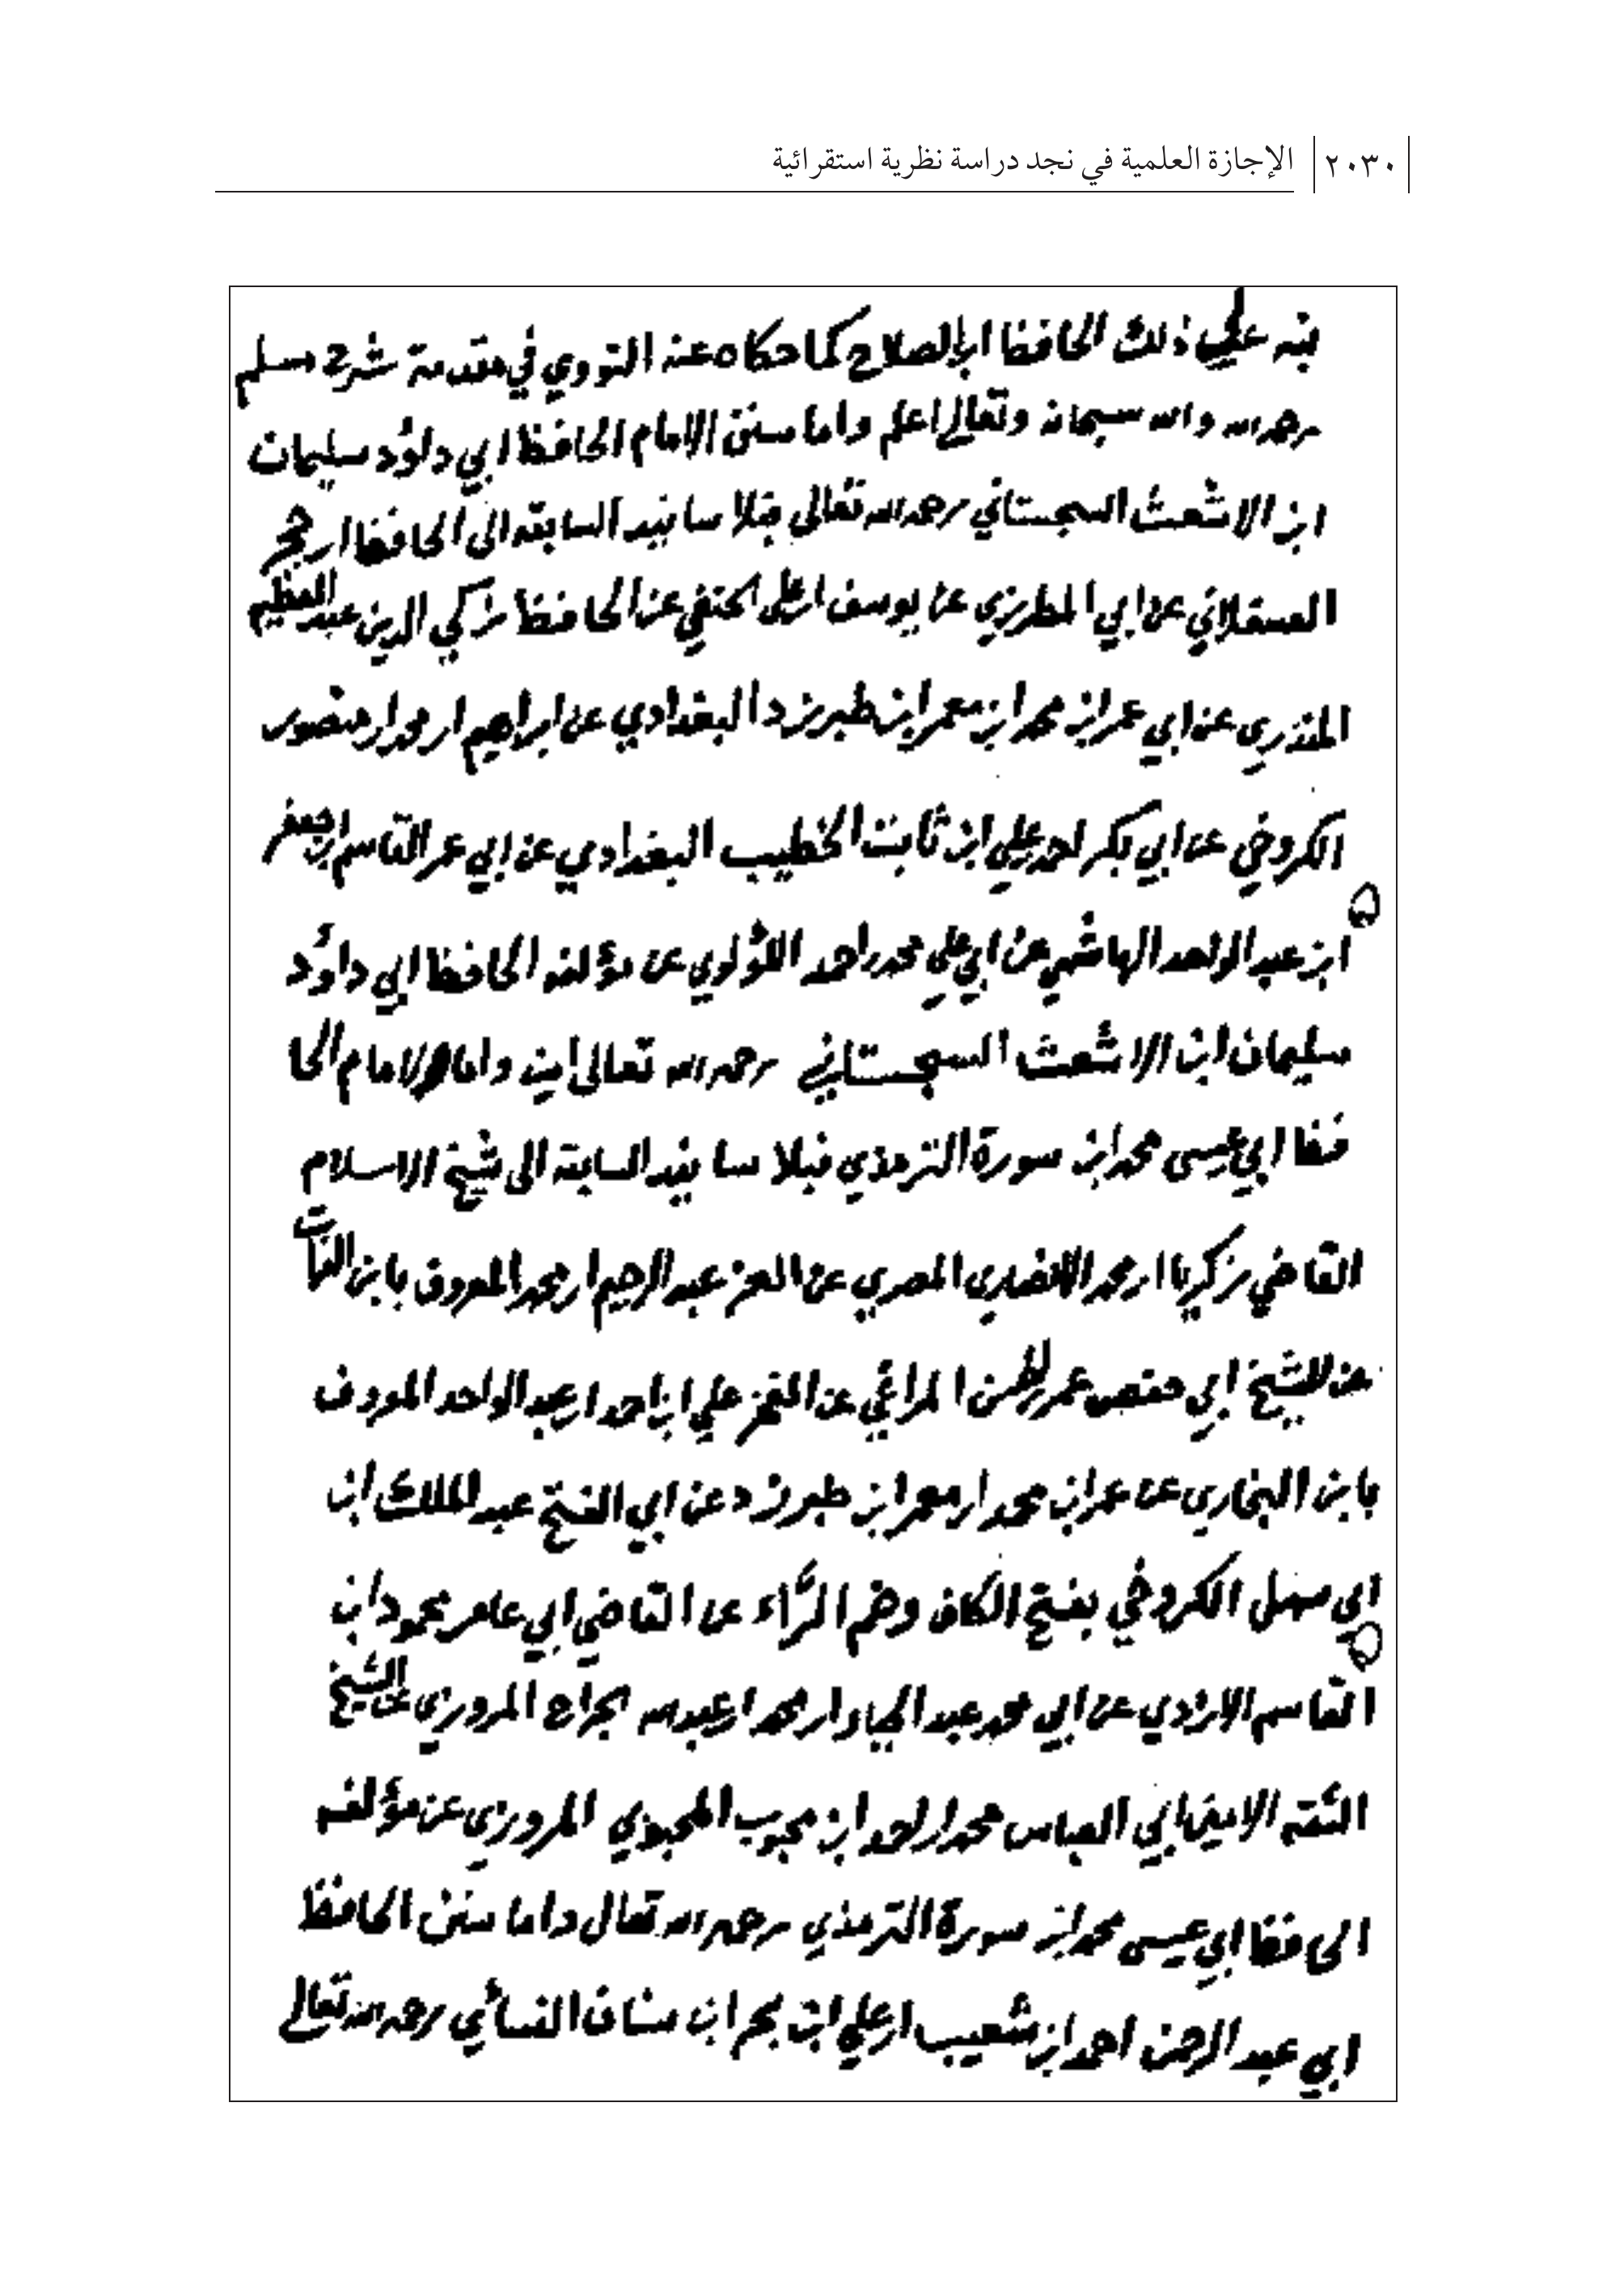 ٢٠٣٠ الإجازة العلمية في نجد دراسة نظرية استقرائية
نبه على ذلك الحافظ ابن الصلاح كما حكاه عنه النووي في مقدمة شرح مسلم
رحمه الله والله سبحانه وتعالى اعلم واما سنن الامام الحافظ ابي داود سليمان
ابن الاشعث السجستاني رحمه الله تعالى فبلاسانيد السابقة الى الحافظ ابن حجر
العسقلاني عن ابي المطرزي عن يوسف ابن علي الحنفي عن الحافظ زكي الدين عبد العظيم
المنذري عن ابي عمر ابن محمد ابن معمر ابن طبرزد البغدادي عن ابراهيم ابن محمد ابن منصور
الكروخي عن ابي بكر احمد علي ابن ثابت الخطيب البغدادي عن ابي عمر القاسم ابن جعفر
ابن عبد الواحد الهاشمي عن ابي علي محمد ابن احمد اللؤلوي عن مؤلفه الحافظ ابي داؤد
سليمان ابن الاشعث السجستاني رحمه الله تعالى امين واما الامام الحا
فظ ابي عيسى محمد ابن سورة الترمذي فبلاسانيد السابقة الى شيخ الاسلام
القاضي زكريا ابن محمد الانصاري المصري عن العز عبد الرحيم ابن محمد المعروف بابن الفرات
عن الشيخ ابي حفص عمر ابن الحسن المراغي عن الفخر علي ابن احمد ابن عبد الواحد المعروف
بابن البخاري عن عمر ابن محمد ابن معمر ابن طبرزد عن ابي الفتح عبد الملك ابن
ابي سهل الكروخي بفتح الكاف وضم الراء عن القاضي ابي عامر محمود ابن
القاسم الازدي عن ابي محمد عبد الجبار ابن محمد ابن عبد الله الجراح المروزي عن الشيخ
الثقة الامين ابي العباس محمد ابن احمد ابن محبوب المحبوبي المروزي عن مؤلفه
الحافظ ابي عيسى محمد ابن سورة الترمذي رحمه الله تعالى واما سنن الحافظ
ابي عبد الرحمن احمد ابن شعيب ابن علي ابن بحر ابن سنان النسائي رحمه الله تعالى